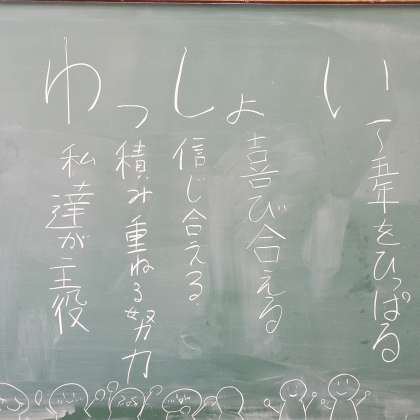 わっしょい
私達が主役
積み重ねる努力
信じ合える
喜び合える
一〜五年をひっぱる